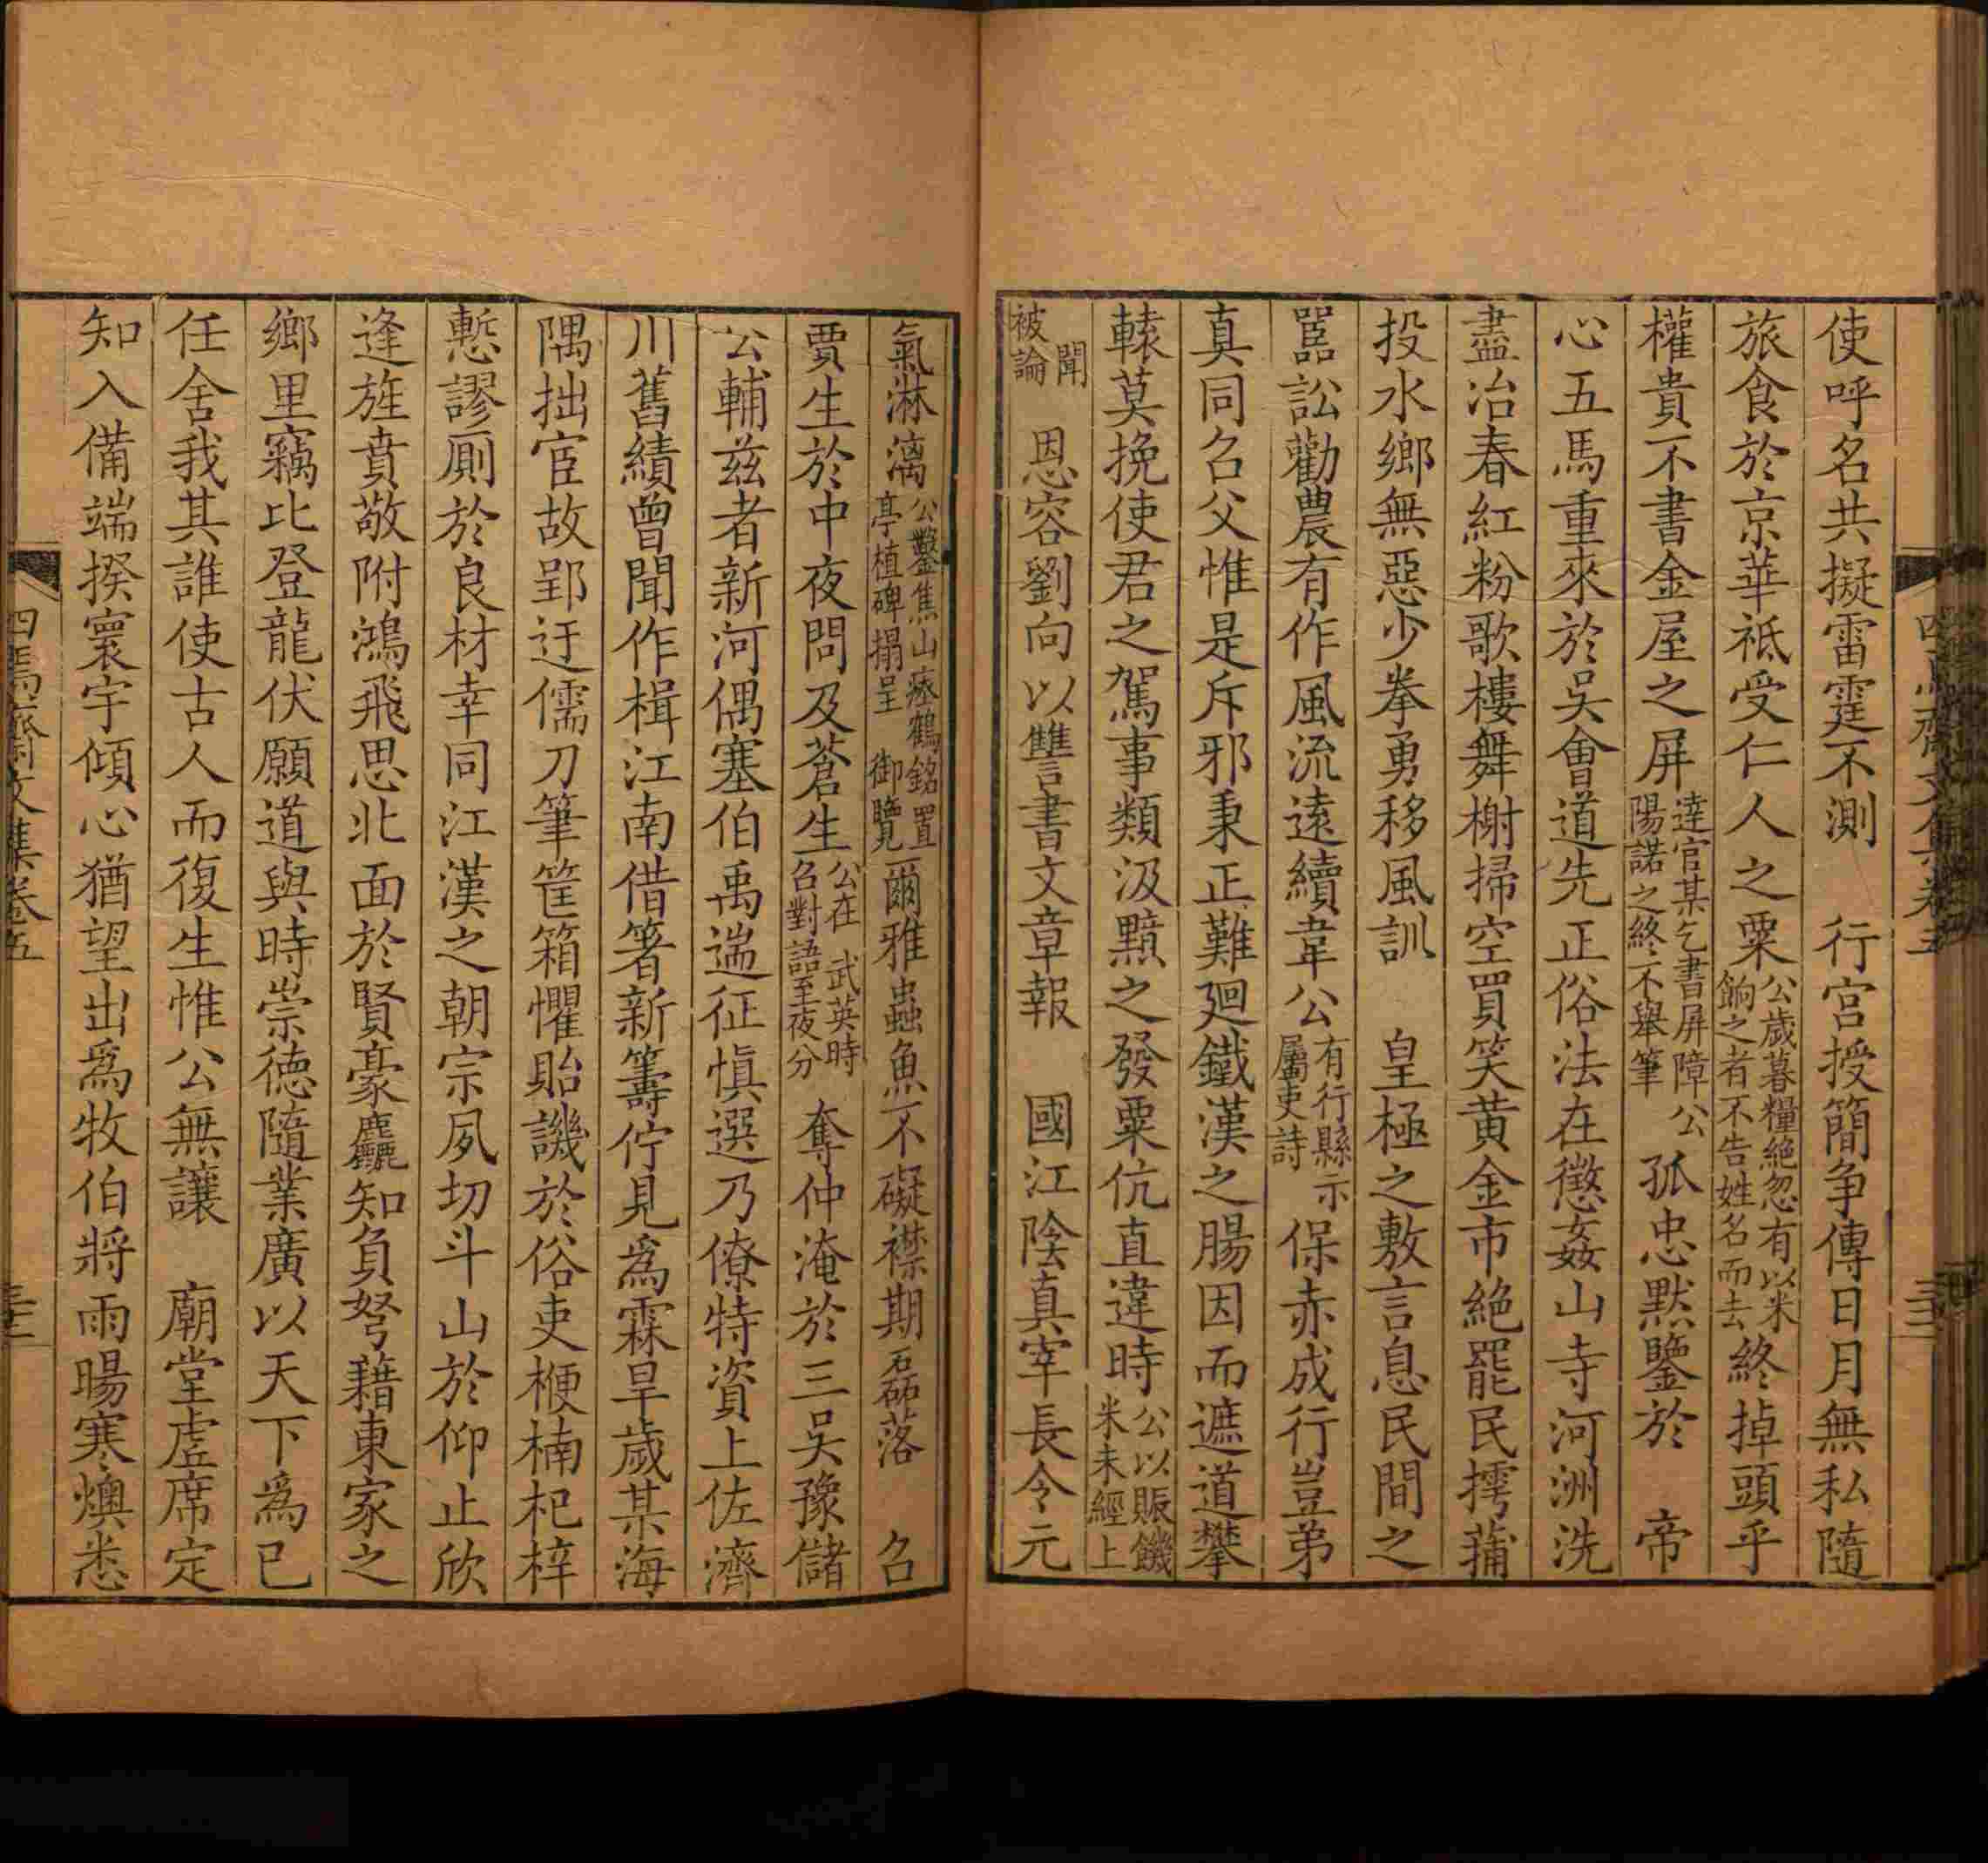 使呼名共擬雷霆不測　行宮授簡爭傳日月無私隨
旅食於京華祗受仁人之粟公歲暮糧絕忽有以米餉之者不告姓名而去終掉頭乎
權貴不書金屋之屏達官某乞書屏障公陽諾之終不舉筆孤忠默鑒於　帝
心五馬重來於吳會道先正俗法在懲姦山寺河洲洗
盡冶春紅粉歌樓舞榭掃空買笑黃金市絕罷民摴蒱
投水鄉無惡少拳勇移風訓　皇極之敷言息民間之
嚚訟勸農有作風流遠續韋公有行縣示屬吏詩保赤成行豈弟
真同召父惟是斥邪秉正難廻鐵漢之腸因而遮道攀
轅莫挽使君之駕事類汲黯之發粟伉直違時公以賑饑米未經上
聞被論　恩容劉向以讐書文章報　國江陰真宰長令元
氣淋漓公鑿焦山瘞鶴銘置亭植碑搨呈　御覽爾雅蟲魚不礙襟期磊落　召
賈生於中夜問及蒼生公在　武英時召對語至夜分　奪仲淹於三吳豫儲
公輔茲者新河偶塞伯禹遄征慎選乃僚特資上佐濟
川舊績曾聞作楫江南借箸新籌佇見爲霖旱歲某海
隅拙宦故郢迂儒刀筆筐箱懼貽譏於俗吏梗楠杞梓
慙謬厠於良材幸同江漢之朝宗夙切斗山於仰止欣
逢旌賁敬附鴻飛思北面於賢豪麤知負弩藉東家之
鄉里竊比登龍伏願道與時崇德隨業廣以天下爲已
任舍我其誰使古人而復生惟公無讓　廟堂虛席定
知入備端揆寰宇傾心猶望出爲牧伯將雨暘寒燠悉
四焉齋文集卷五